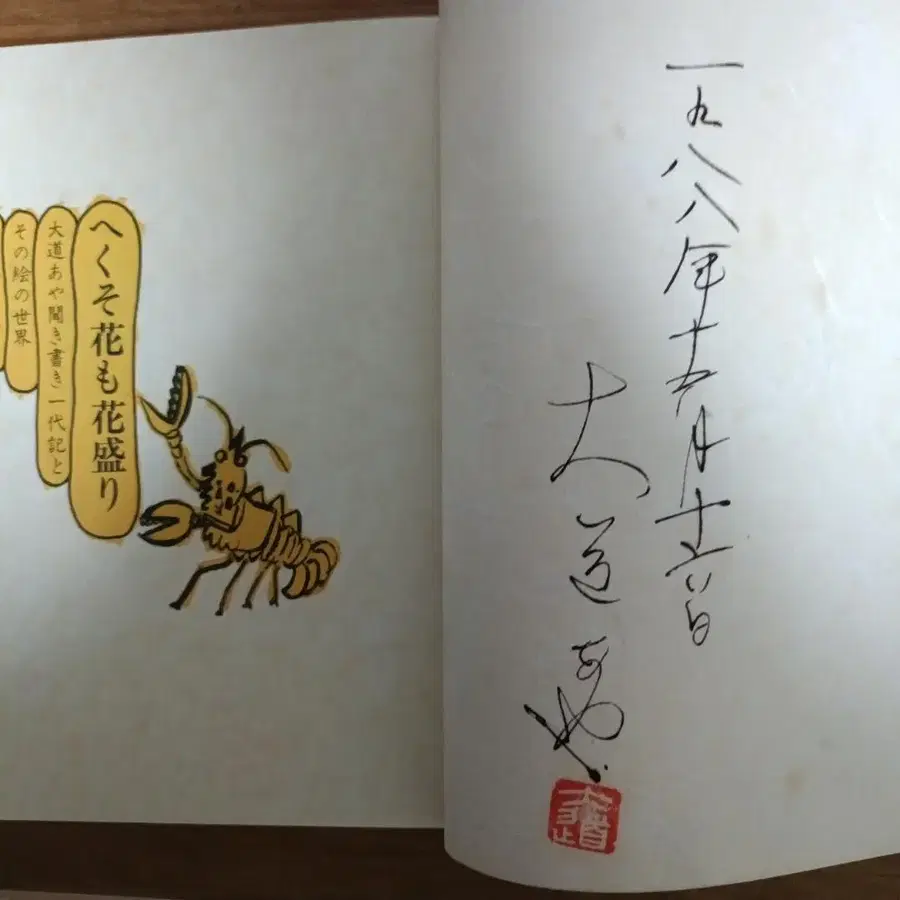 一九八八年十 月十六日
大道あや
へくそ花も花盛り
大道あや聞き書き一代記と
その絵の世界